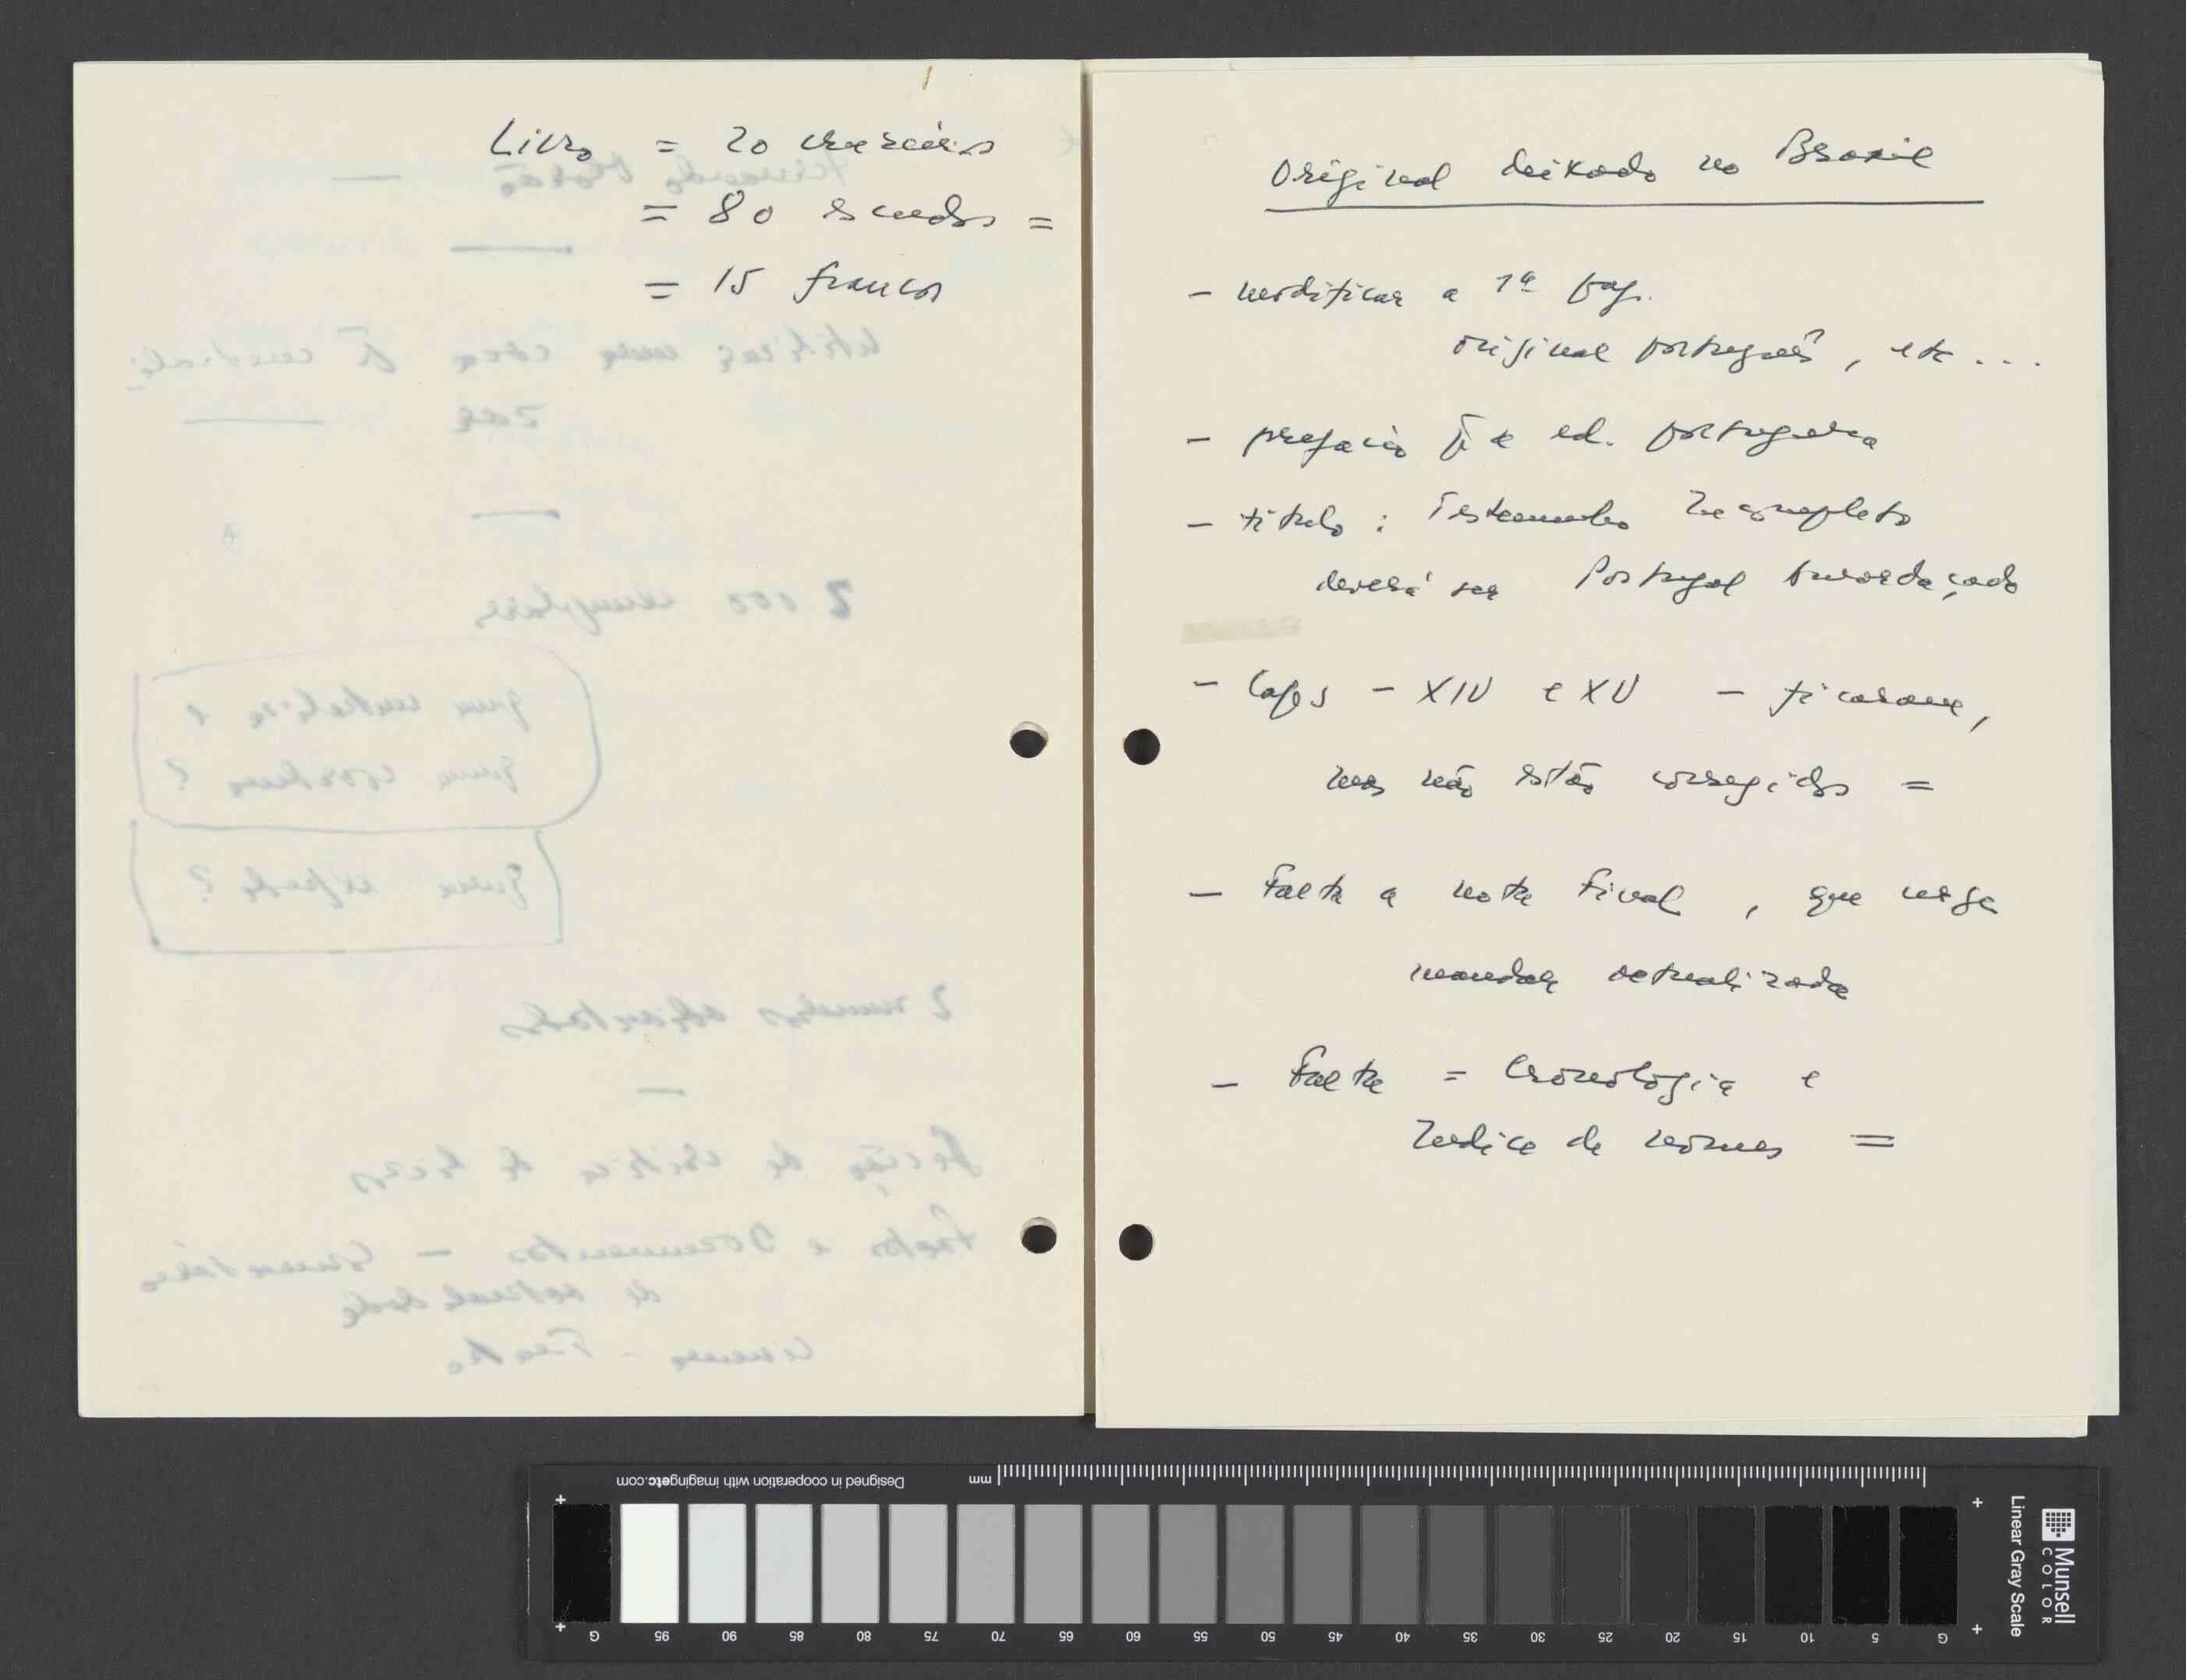 Livro = 20 cruzeiros
= 80 escudos =
= 15 francos
Original deixado no Brasil
- modificar a 1ª pag.
original português, etc...
- prefacio p̄ a ed. portuguesa
- titulo: Testemunho Incompleto
deverá ser Portugal Amordaçado
- Caps - XIV e XV - ficaram,
mas não estão corrigidos =
- Falta a nota final, que urge
mandar actualizada
- Falta = Cronologia e
Indice de nomes =
Designed in cooperation with imagingetc.com
mm
Munsell
COLOR
Linear Gray Scale
G 95 90 85 80 75 70 65 60 55 50 45 40 35 30 25 20 15 10 5 G